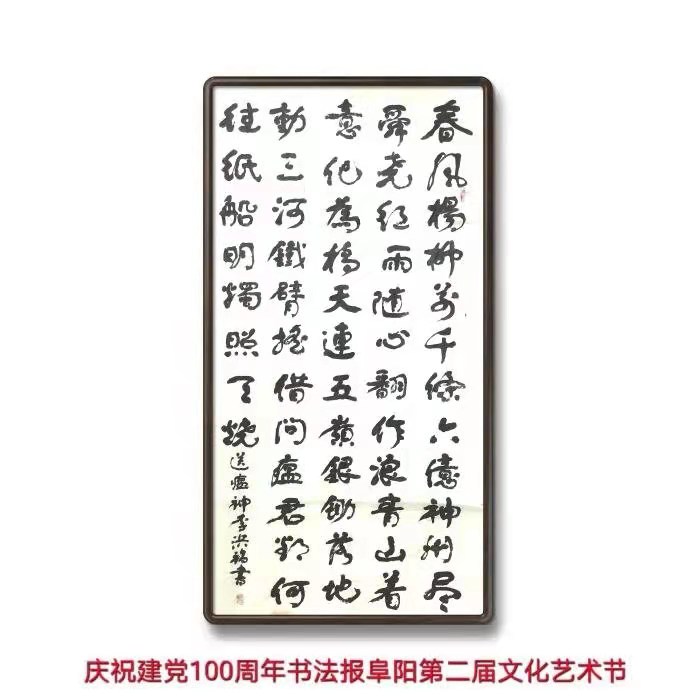 春风楊柳万千條六億神州尽
舜尧红雨随心翻作浪青山着
意化為橋天連五嶺銀鋤落地
動三河鐵臂摇借问瘟君欲何
往纸船明燭照天烧
送瘟神李洪書
庆祝建党100周年书法报阜阳第二届文化艺术节